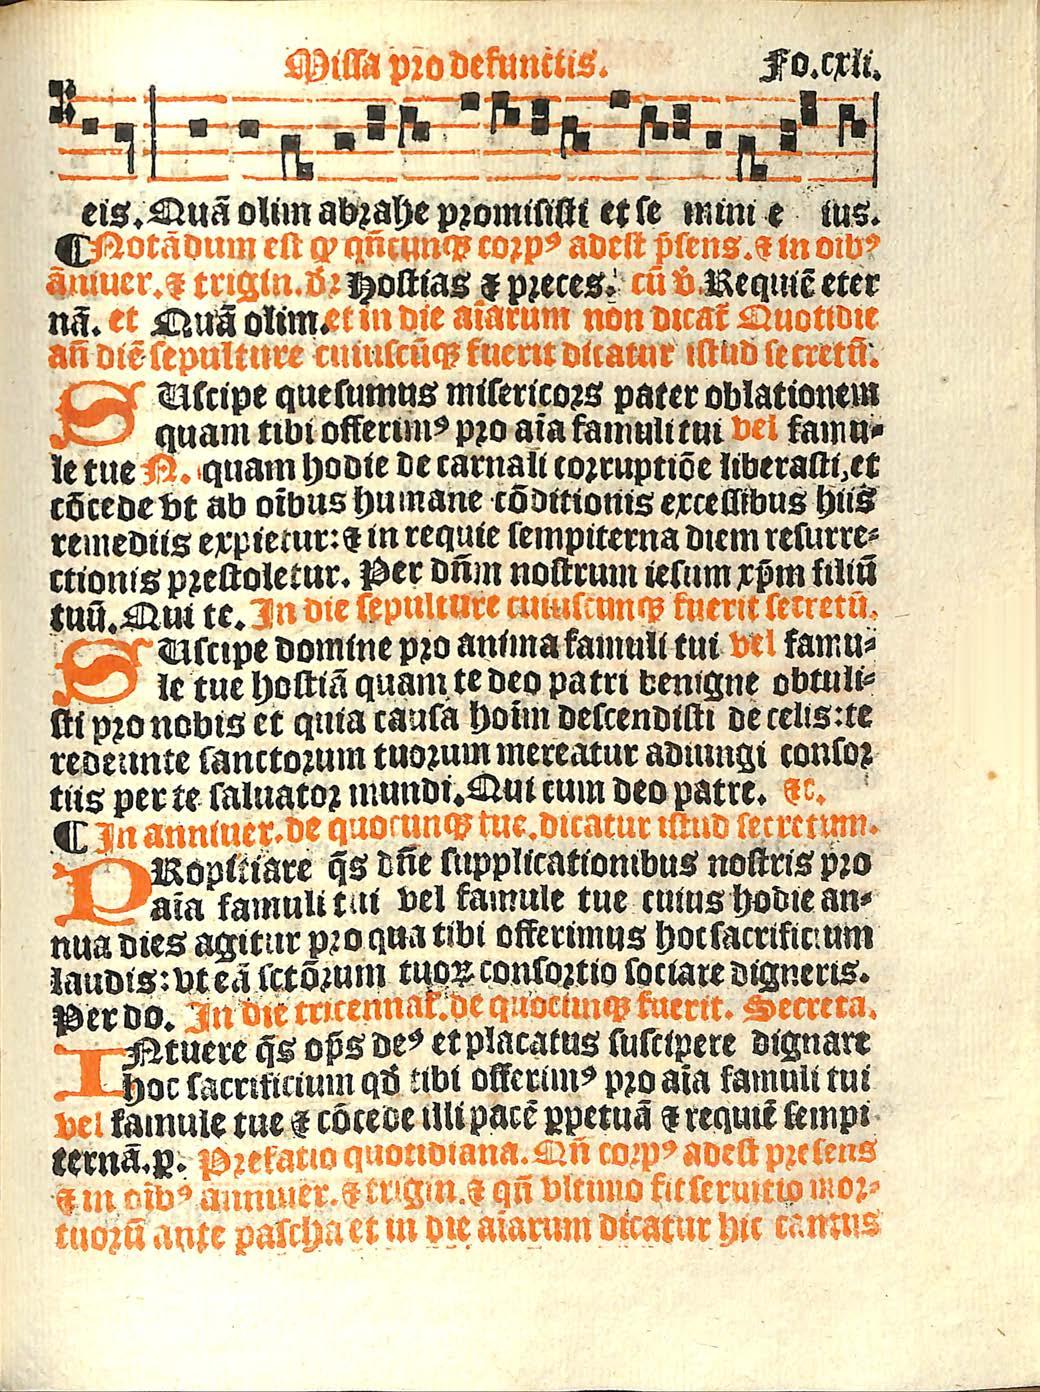 Missa pro defunctis. Fo.cxli.
eis. Quā olim abrahe promisisti et se mini e ius.
¶ Notādum est ꝙ qñcunqꝫ corpꝰ adest p̄sens. ⁊ in oībꝰ
āniuer. ⁊ trigin. dr̄ Hostias ⁊ preces. cū v̄. Requiē eter
nā. et Quā olim. et in die aīarum non dicat᷑ Quotidie
añ diē sepulture cuiuscūqꝫ fuerit dicatur istud secretū.
SUscipe quesumus misericors pater oblationem
quam tibi offerimꝰ pro aīa famuli tui vel famu-
le tue N. quam hodie de carnali corruptiōe liberasti, et
cōcede vt ab oībus humane cōditionis excessibus hiis
remediis expietur: ⁊ in requie sempiterna diem resurre-
ctionis prestoletur. Per dn̄m nostrum iesum xp̄m filiū
tuū. Qui te. In die sepulture cuiuscunqꝫ fuerit secretū.
SUscipe domine pro anima famuli tui vel famu-
le tue hostiā quam te deo patri benigne obtuli-
sti pro nobis et quia causa hoīm descendisti de celis: te
redeunte sanctorum tuorum mereatur adiungi consor
tiis per te saluator mundi. Qui cum deo patre. ⁊c.
¶ In anniuer. de quocunqꝫ tue. dicatur istud secretum.
PRopitiare q̄s dn̄e supplicationibus nostris pro
aīa famuli tui vel famule tue cuius hodie an-
nua dies agitur pro qua tibi offerimus hoc sacrificium
laudis: vt eā sctōrum tuoꝝ consortio sociare digneris.
Per do. In die tricennal̄. de quocunqꝫ fuerit. Secreta.
INtuere q̄s op̄s deꝰ et placatus suscipere dignare
hoc sacrificium qđ tibi offerimꝰ pro aīa famuli tui
vel famule tue ⁊ cōcede illi pacē ꝑpetuā ⁊ requiē sempi
ternā. ꝑ. Prefatio quotidiana. Qñ corpꝰ adest presens
⁊ in oībꝰ anniuer. ⁊ trigin. ⁊ qñ vltimo fit seruitio mor-
tuorū ante pascha et in die aīarum dicatur hic cantus